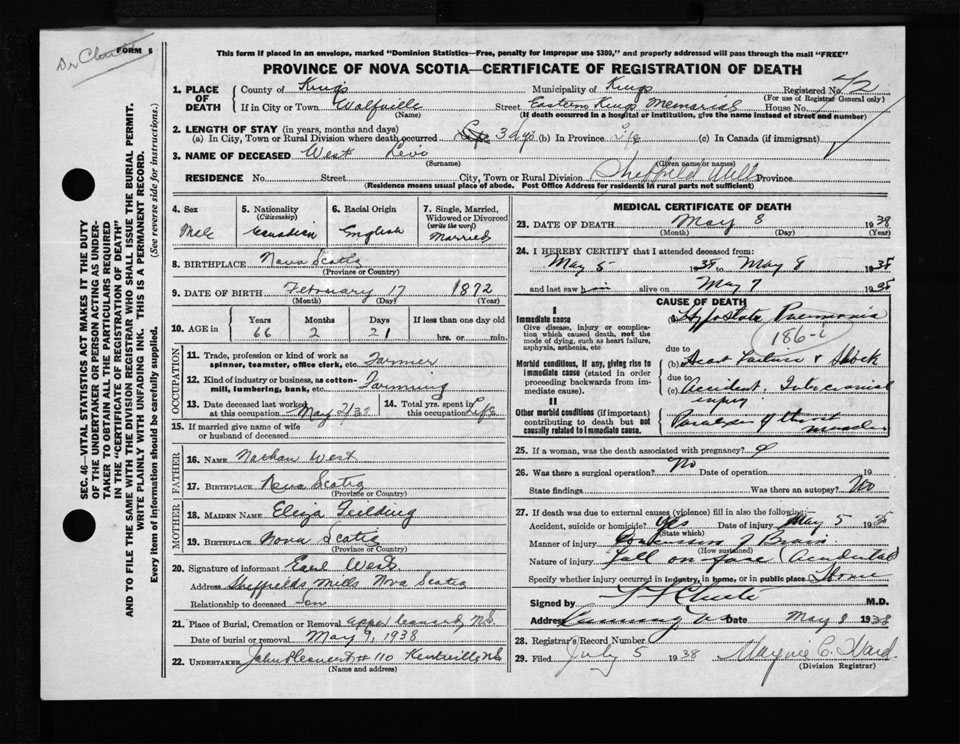 Dr
FORM 6
This form if placed in an envelope, marked "Dominion Statistics—Free, penalty for improper use $300," and properly addressed will pass through the mail "FREE"
PROVINCE OF NOVA SCOTIA—CERTIFICATE OF REGISTRATION OF DEATH
1. PLACE OF DEATH
County of Kings Municipality of Kings Registered No.
(For use of Registrar General only)
If in City or Town Wolfville Street Eastern Kings Memorial House No.
(Name) (If death occurred in a hospital or institution, give the name instead of street and number)
2. LENGTH OF STAY (in years, months and days)
(a) In City, Town or Rural Division where death occurred 3 dys (b) In Province Life (c) In Canada (if immigrant)
3. NAME OF DECEASED West Levi
(Surname) (Given name or names)
RESIDENCE No. Street City, Town or Rural Division Sheffield Mill Province
(Residence means usual place of abode. Post Office Address for residents in rural parts not sufficient)
4. Sex
Male
5. Nationality
(Citizenship)
Canadian
6. Racial Origin
English
7. Single, Married, Widowed or Divorced
(write the word)
Married
8. BIRTHPLACE Nova Scotia
(Province or Country)
9. DATE OF BIRTH February 17 1872
(Month) (Day) (Year)
10. AGE in
Years Months Days If less than one day old
66 2 21 hrs. or min.
OCCUPATION
11. Trade, profession or kind of work as spinner, teamster, office clerk, etc. Farmer
12. Kind of industry or business, as cotton-mill, lumbering, bank, etc. Farming
13. Date deceased last worked at this occupation May
14. Total yrs. spent in this occupation Life
15. If married give name of wife or husband of deceased
FATHER
16. NAME Nathan West
17. BIRTHPLACE Nova Scotia
(Province or Country)
MOTHER
18. MAIDEN NAME Eliza Fielding
19. BIRTHPLACE Nova Scotia
(Province or Country)
20. Signature of informant Earl West
Address Sheffields Mills Nova Scotia
Relationship to deceased Son
21. Place of Burial, Cremation or Removal Upper N.S.
Date of burial or removal May 9, 1938
22. UNDERTAKER John # 110 Kentville NS
(Name and address)
MEDICAL CERTIFICATE OF DEATH
23. DATE OF DEATH May 8 1938
(Month) (Day) (Year)
24. I HEREBY CERTIFY that I attended deceased from:
May 5 1938 to May 8 1938
and last saw him alive on May 7 1938
CAUSE OF DEATH
I
Immediate cause
Give disease, injury or complication which caused death, not the mode of dying, such as heart failure, asphyxia, asthenia, etc.
(a) Hypostatic Pneumonia
186-c
due to
Morbid conditions, if any, giving rise to immediate cause (stated in order proceeding backwards from immediate cause).
(b) Heart Failure & Shock
due to
(c) Accident. Intracranial injury
II
Other morbid conditions (if important) contributing to death but not causally related to immediate cause.
Paralysis of throat muscles
25. If a woman, was the death associated with pregnancy?
26. Was there a surgical operation? No Date of operation 19
State findings Was there an autopsy? No
27. If death was due to external causes (violence) fill in also the following:
Accident, suicide or homicide? Yes Date of injury May 5 1938
(State which)
Manner of injury Concussion of Brain
(How sustained)
Nature of injury Fall on face (Accidental)
Specify whether injury occurred in industry, in home, or in public place Home
Signed by M.D.
Address Canning Date May 8 1938
28. Registrar's Record Number
29. Filed July 5 1938
(Division Registrar)
SEC. 46—VITAL STATISTICS ACT MAKES IT THE DUTY
OF THE UNDERTAKER OR PERSON ACTING AS UNDER-
TAKER TO OBTAIN ALL THE PARTICULARS REQUIRED
IN THE "CERTIFICATE OF REGISTRATION OF DEATH"
AND TO FILE THE SAME WITH THE DIVISION REGISTRAR WHO SHALL ISSUE THE BURIAL PERMIT.
WRITE PLAINLY WITH UNFADING INK. THIS IS A PERMANENT RECORD.
Every item of information should be carefully supplied. (See reverse side for instructions.)